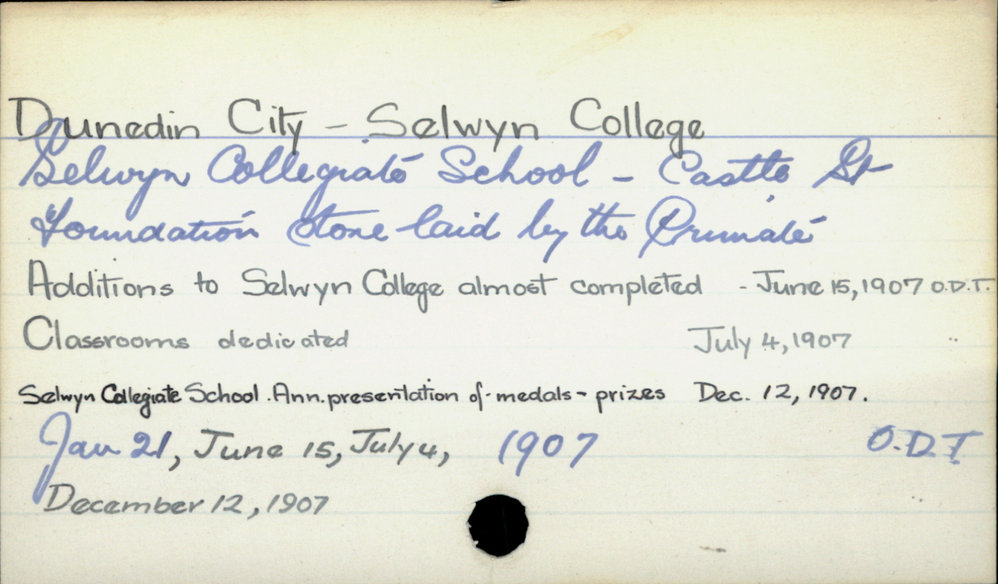 Dunedin City - Selwyn College
Selwyn Collegiate School - Castle St
Foundation stone laid by the Primate
Additions to Selwyn College almost completed - June 15, 1907 O.D.T.
Classrooms dedicated July 4, 1907
Selwyn Collegiate School. Ann. presentation of medals - prizes Dec. 12, 1907.
Jan 21, June 15, July 4, 1907 O.D.T
December 12, 1907